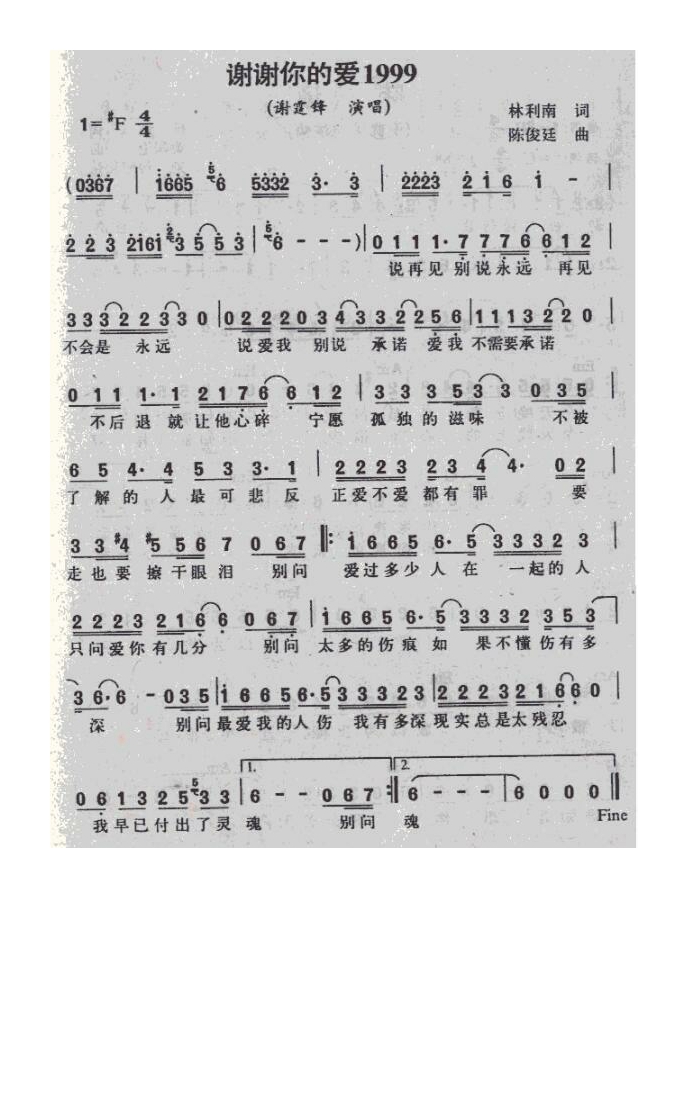 谢谢你的爱1999
(谢霆锋 演唱)
1=#F 4/4
林利南 词
陈俊廷 曲
(0367 | 1665 5 6 5332 3· 3 | 2223 2 1 6 1 - |
2 2 3 2161 2 3 5 5 3 | 5 6 - - - )| 0 1 1 1 1· 7 7 7 6 6 1 2
说再见 别说永远 再见
3 3 3 2 2 3 3 0 | 0 2 2 2 0 3 4 3 3 2 2 5 6 | 1 1 1 3 2 2 0 |
不会是 永远 说爱我 别说 承诺 爱我 不需要承诺
0 1 1 1· 1 2 1 7 6 6 1 2 | 3 3 3 5 3 3 0 3 5 |
不后退就让他心碎 宁愿 孤独的滋味 不被
6 5 4· 4 5 3 3· 1 | 2 2 2 3 2 3 4 4· 0 2 |
了解的人最可悲反 正爱不爱都有罪 要
3 3 #4 #5 5 6 7 0 6 7 ‖: 1 6 6 5 6· 5 3 3 3 2 3 |
走也要擦干眼泪 别问 爱过多少人在 一起的人
2 2 2 3 2 1 6 6 0 6 7 | 1 6 6 5 6· 5 3 3 3 2 3 5 3
只问爱你有几分 别问 太多的伤痕如 果不懂伤有多
3 6· 6 - 0 3 5 | 1 6 6 5 6· 5 3 3 3 2 3 | 2 2 2 3 2 1 6 6 0 |
深 别问最爱我的人伤 我有多深现实总是太残忍
1. 2.
0 6 1 3 2 5 5 3 3 | 6 - - 0 6 7 :‖ 6 - - - | 6 0 0 0 ‖
我早已付出了灵魂 别问 魂
Fine